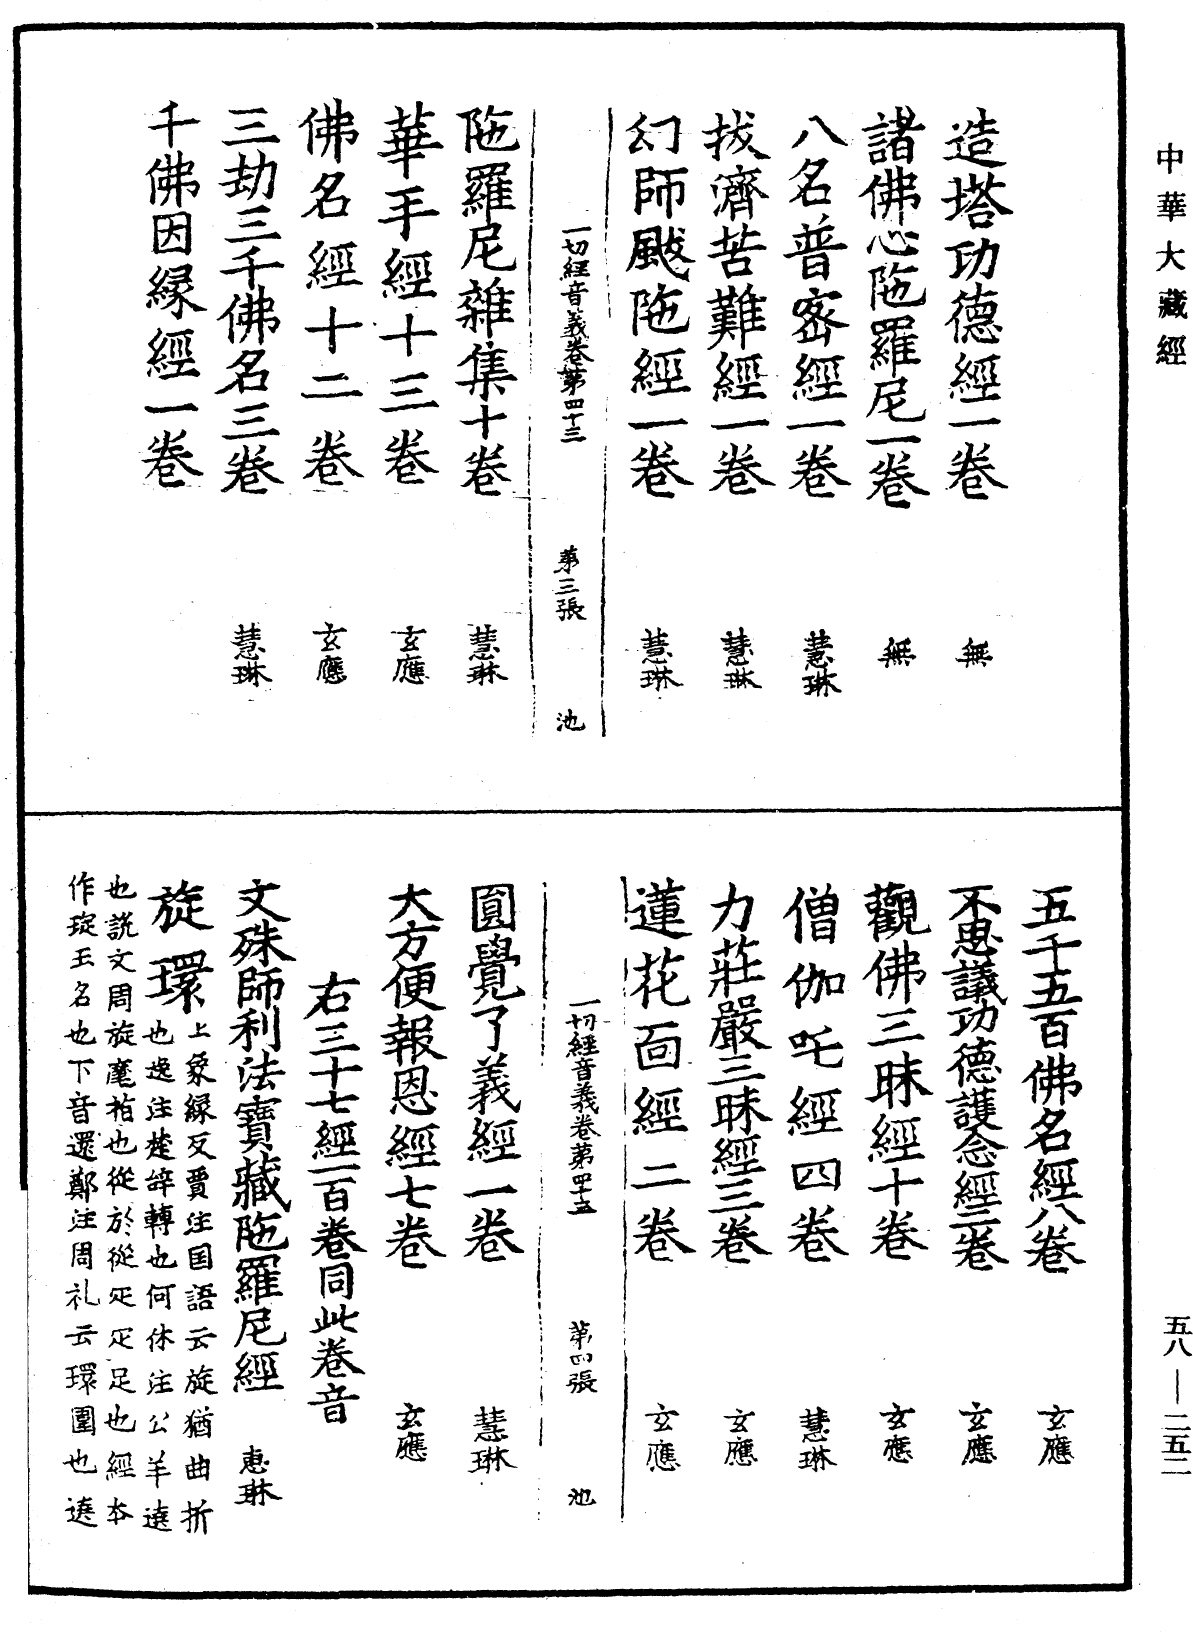 中華大藏經
造塔功德經一卷 無
諸佛心陁羅尼一卷 無
八名普密經一卷 慧琳
拔濟苦難經一卷 慧琳
幻師颰陁經一卷 慧琳
一切經音義卷第四十三 第三張 池
陁羅尼雜集十卷 慧琳
華手經十三卷 玄應
佛名經十二卷 玄應
三劫三千佛名三卷 慧琳
千佛因緣經一卷
五千五百佛名經八卷 玄應
不思議功德護念經二卷 玄應
觀佛三昧經十卷 玄應
僧伽吒經四卷 慧琳
力莊嚴三昧經三卷 玄應
蓮花面經二卷 玄應
一切經音義卷第四十三 第四張 池
圓覺了義經一卷 慧琳
大方便報恩經七卷 玄應
右三十七經一百卷同此卷音
文殊師利法寶藏陁羅尼經 惠琳
旋環 上象緣反賈注国語云旋猶曲折
也逸注楚辞轉也何休注公羊遶
也說文周旋麾指也從㫃從疋疋足也經本
作琁玉名也下音還鄭注周礼云環圍也遶
五八—二五二